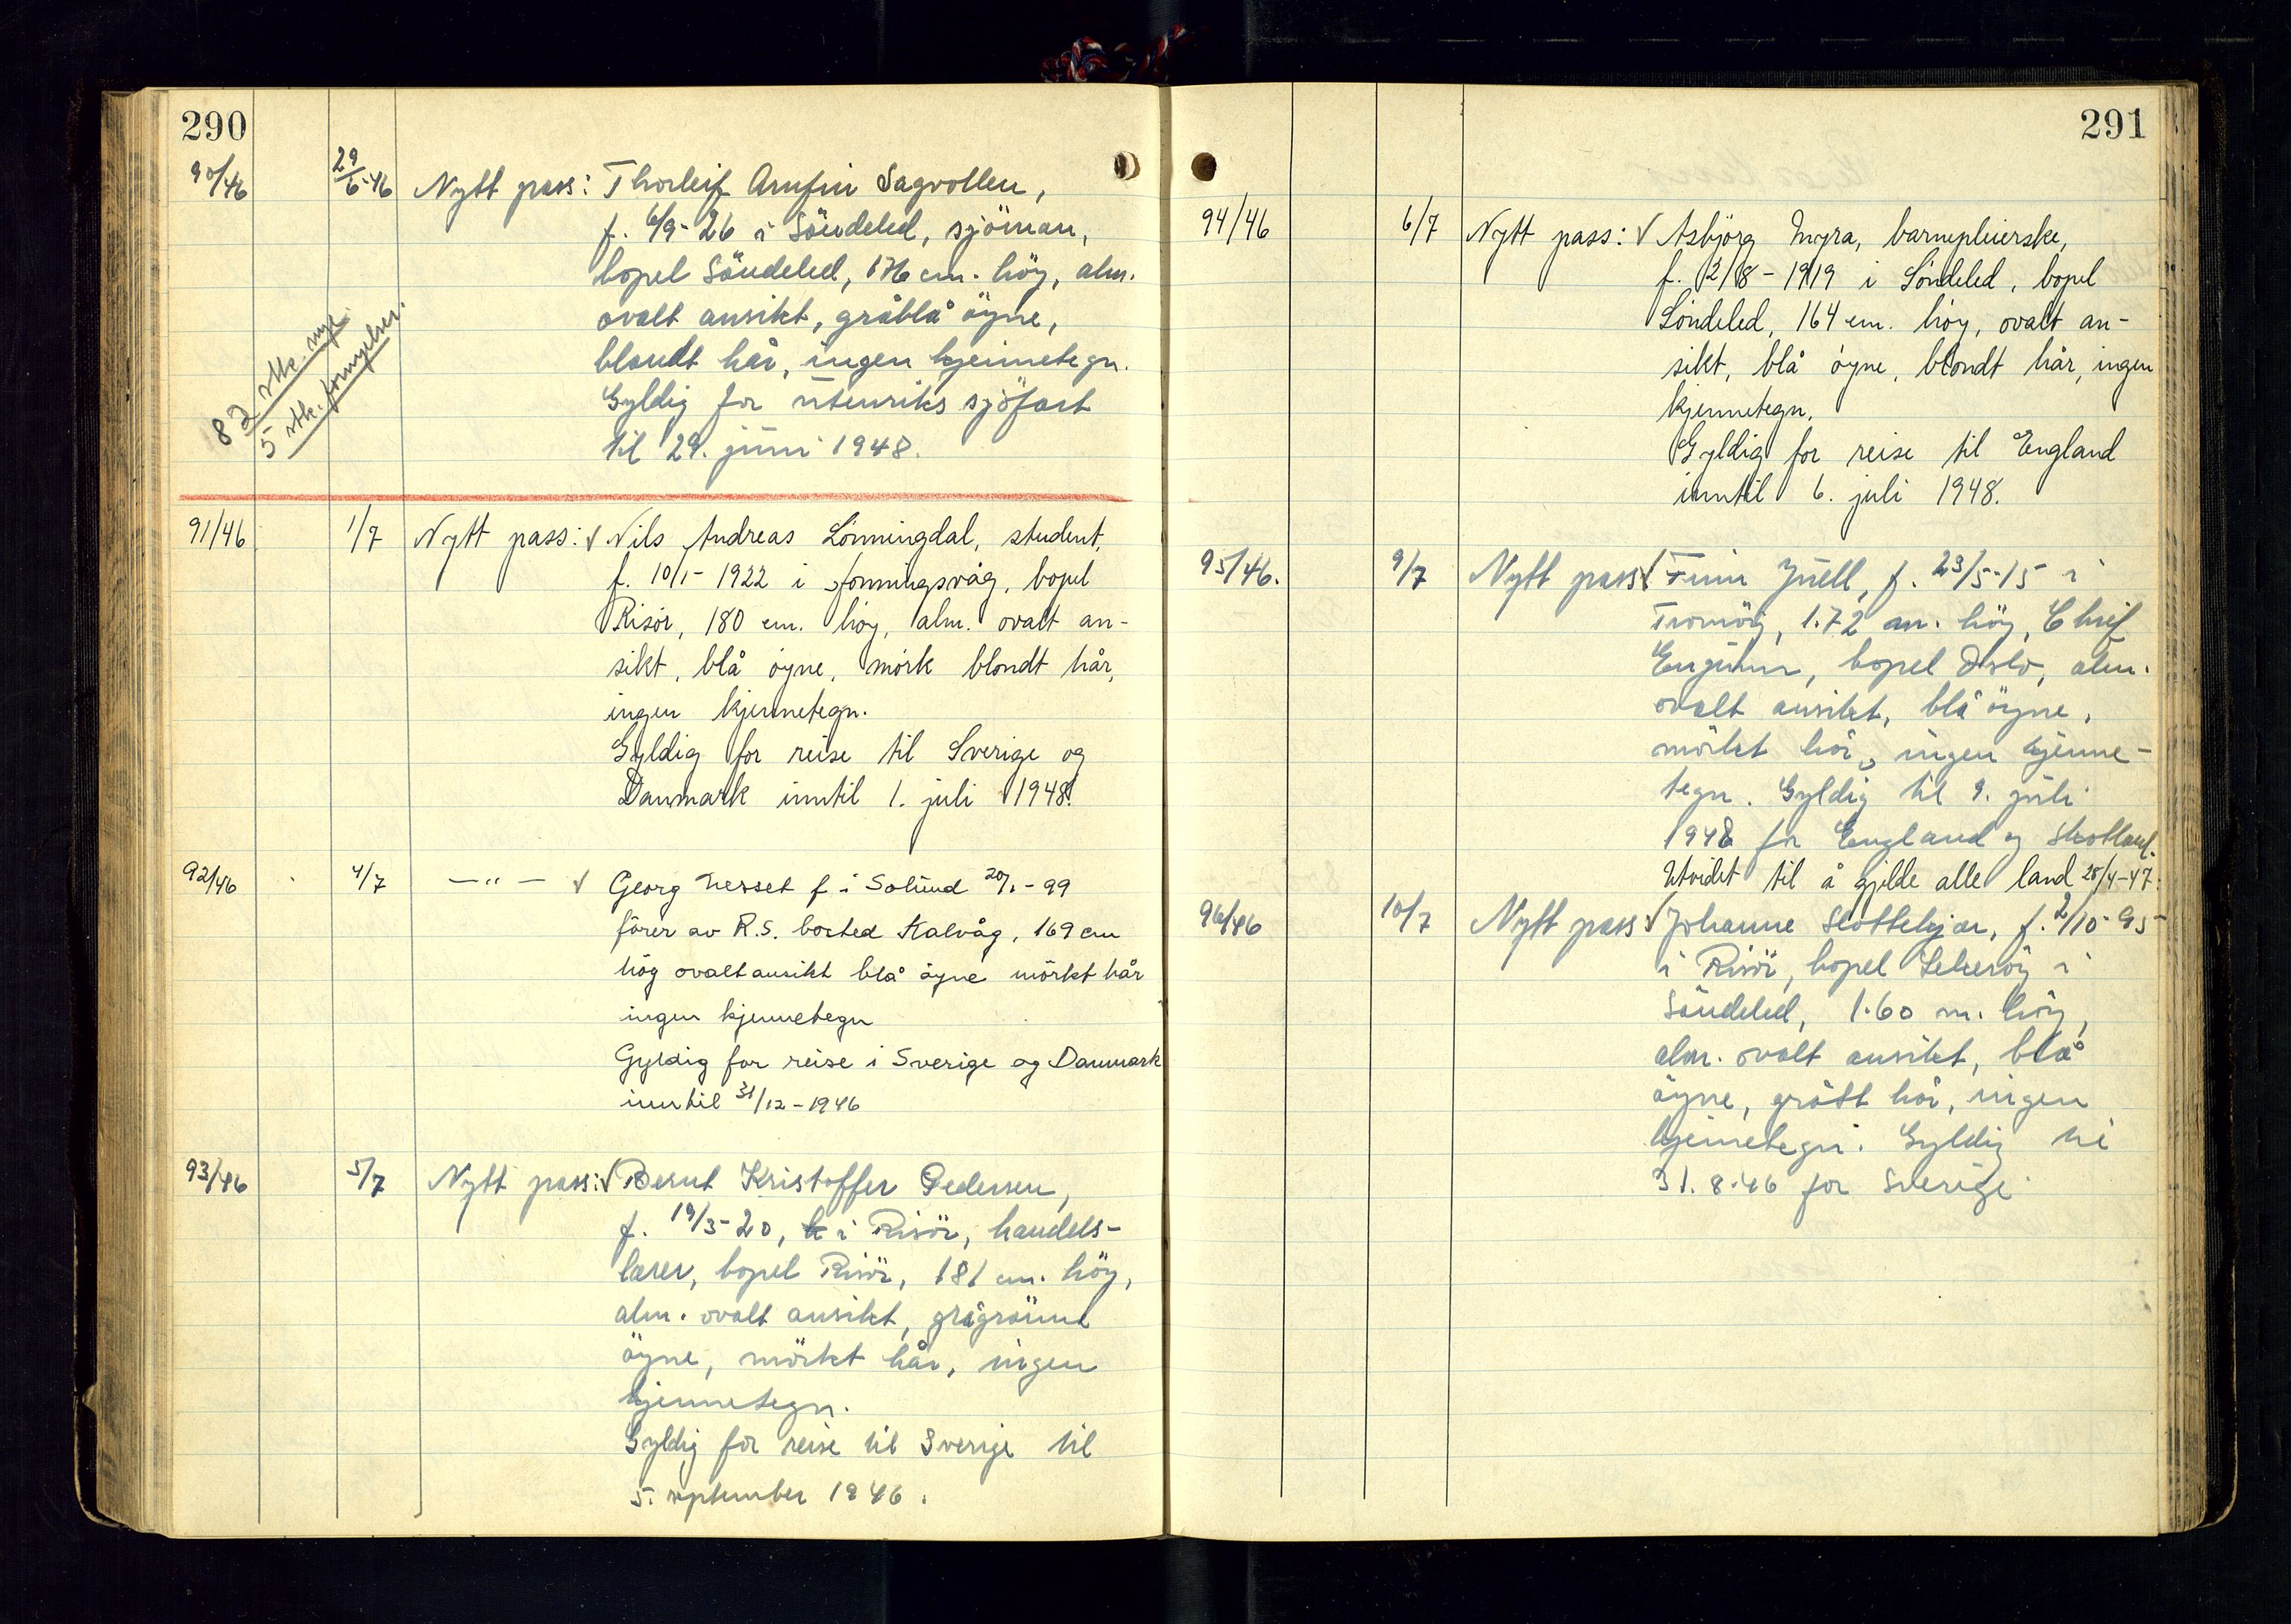 290
90/46 29/6-46 Nytt pass: Thorleif Arnfin Sagvollen,
f. 6/9-26 i Söndeled, sjöman,
bopel Söndeled, 176 cm. höy, alm.
ovalt ansikt, gråblå öyne,
blondt hår, ingen kjennetegn.
Gyldig for utenriks sjöfart
til 29. juni 1948.
82 stk. nye.
5 stk. fornyelser.
91/46 1/7 Nytt pass: √ Nils Andreas Lönningdal, student,
f. 10/1-1922 i Honningsvåg, bopel
Risör, 180 cm. höy, alm. ovalt an-
sikt, blå öyne, mörk blondt hår,
ingen kjennetegn.
Gyldig for reise til Sverige og
Danmark inntil 1. juli 1948.
92/46 4/7 —"— √ Georg Nesset f i Solund 20/1-99
förer av R.S. bosted Kalvåg, 169 cm
hög ovalt ansikt blå öyne mörkt hår
ingen kjennetegn
Gyldig for reise i Sverige og Danmark
inntil 31/12-1946
93/46 5/7 Nytt pass: √ Bernt Kristoffer Pedersen,
f. 19/3-20, i Risör, handels-
lærer, bopel Risör, 181 cm. höy,
alm. ovalt ansikt, grågrönne
öyne, mörkt hår, ingen
kjennetegn.
Gyldig for reise til Sverige til
5. september 1946.
291
94/46 6/7 Nytt pass: √ Asbjörg Myra, barnepleierske,
f. 2/8-1919 i Söndeled, bopel
Söndeled, 164 cm. höy, ovalt an-
sikt, blå öyne, blondt hår, ingen
kjennetegn.
Gyldig for reise til England
inntil 6. juli 1948.
95/46. 9/7 Nytt pass √ Finn Juell, f. 23/5-15 i
Tromöy, 1.72 m. höy, Chief
Engineer, bopel Oslo, alm.
ovalt ansikt, blå öyne,
mörkt hår, ingen kjenne-
tegn. Gyldig til 9. juli
1948 for England og Skottland.
Utvidet til å gjelde alle land 25/4-47.
96/46 10/7 Nytt pass √ Johanne Slottekjær, f. 2/10-95
i Risör, bopel i
Söndeled, 1.60 m. höy,
alm. ovalt ansikt, blå
öyne, grått hår, ingen
kjennetegn. Gyldig til
31.8.46 for Sverige